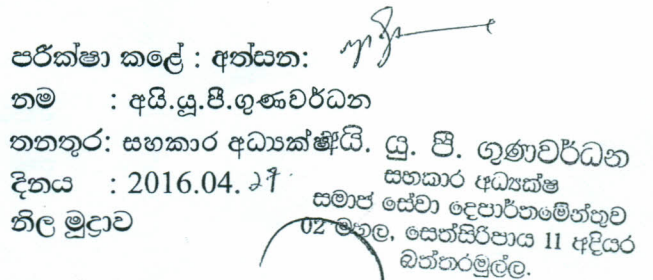 පරීක්ෂා කළේ : අත්සන:
නම : අයි.යූ.පී.ගුණවර්ධන
තනතුර: සහකාර අධ්‍යක්ෂ
දිනය : 2016.04. 27
නිල මුද්‍රාව
අයි. යු. පී. ගුණවර්ධන
සහකාර අධ්‍යක්ෂ
සමාජ සේවා දෙපාර්තමේන්තුව
02 මහල, සෙත්සිරිපාය 11 අදියර
බත්තරමුල්ල.